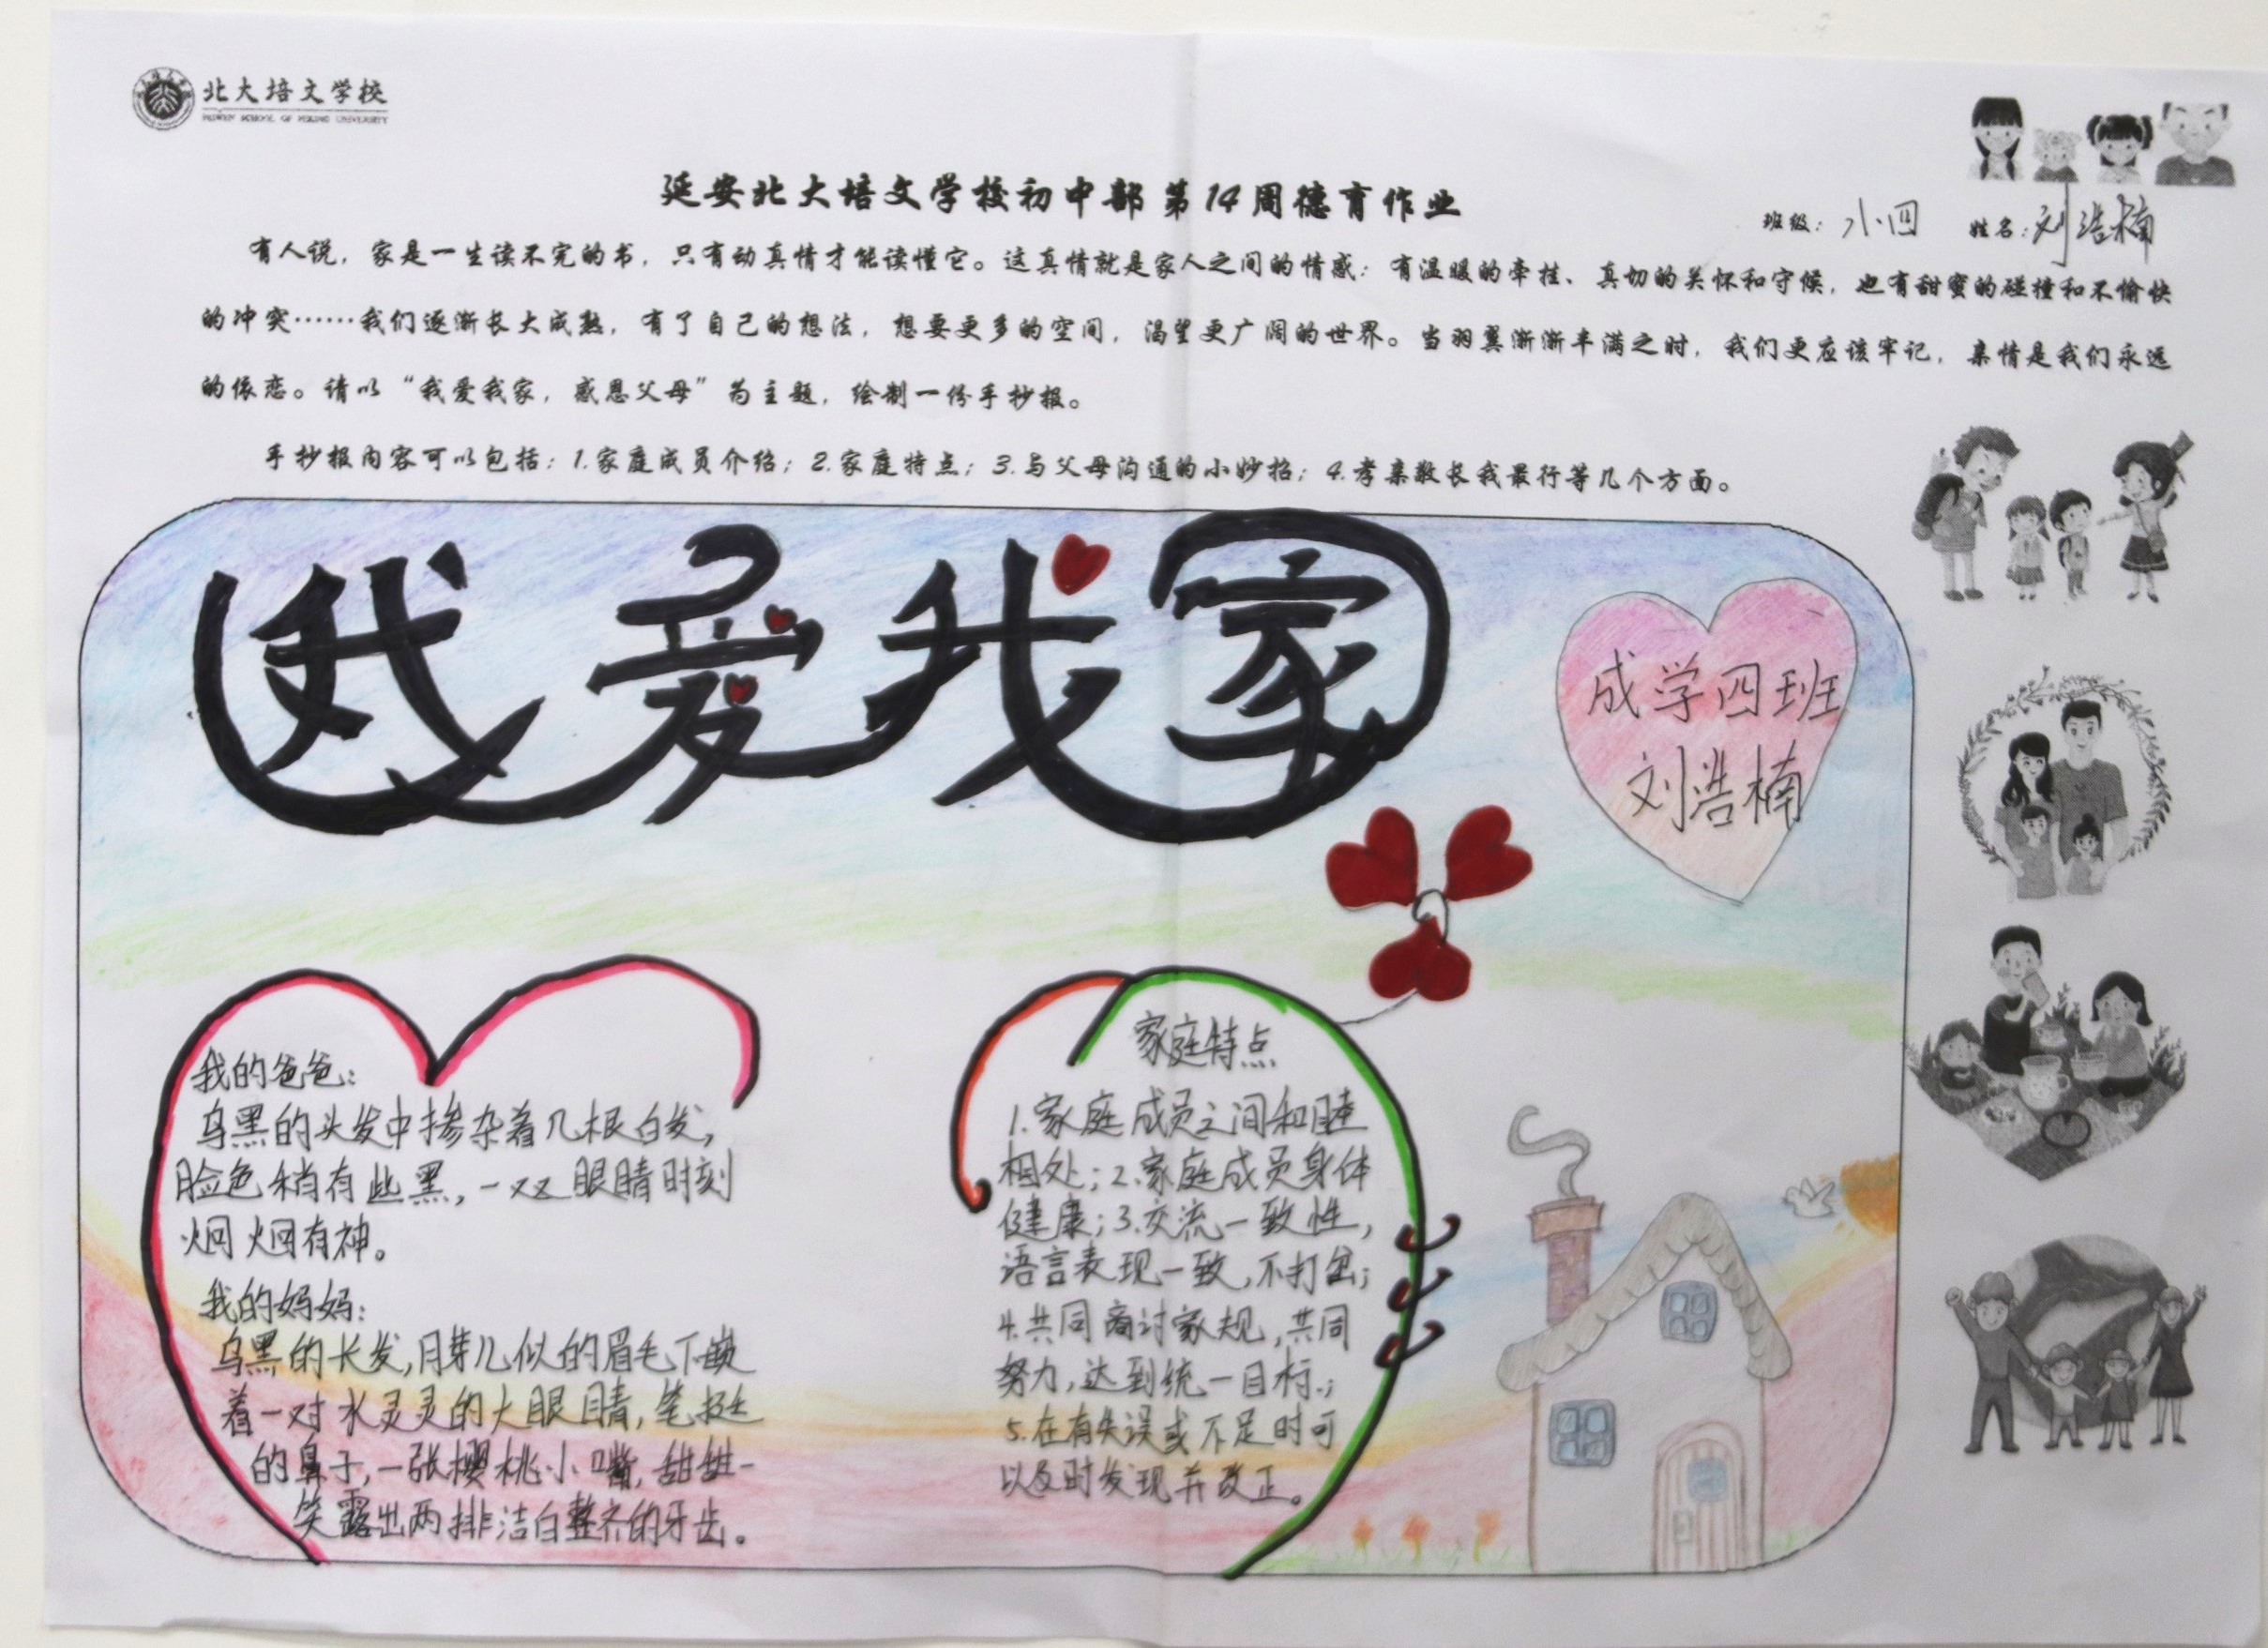 北大培文学校
PEIWEN SCHOOL OF PEKING UNIVERSITY
延安北大培文学校初中部第14周德育作业
班级：小四 姓名：刘浩楠
有人说，家是一生读不完的书，只有动真情才能读懂它。这真情就是家人之间的情感：有温暖的牵挂、真切的关怀和守候，也有甜蜜的碰撞和不愉快
的冲突……我们逐渐长大成熟，有了自己的想法，想要更多的空间，渴望更广阔的世界。当羽翼渐渐丰满之时，我们更应该牢记，亲情是我们永远
的依恋。请以“我爱我家，感恩父母”为主题，绘制一份手抄报。
手抄报内容可以包括：1.家庭成员介绍；2.家庭特点；3.与父母沟通的小妙招；4.孝亲敬长我最行等几个方面。
我爱我家
成学四班
刘浩楠
我的爸爸：
乌黑的头发中掺杂着几根白发，
脸色稍有些黑，一双眼睛时刻
炯炯有神。
我的妈妈：
乌黑的长发，月芽儿似的眉毛下嵌
着一对水灵灵的大眼睛，笔挺
的鼻子，一张樱桃小嘴，甜甜一
笑露出两排洁白整齐的牙齿。
家庭特点
1.家庭成员之间和睦
相处；2.家庭成员身体
健康；3.交流一致性，
语言表现一致，不打岔；
4.共同商讨家规，共同
努力，达到统一目标.；
5.在有失误或不足时可
以及时发现并改正。